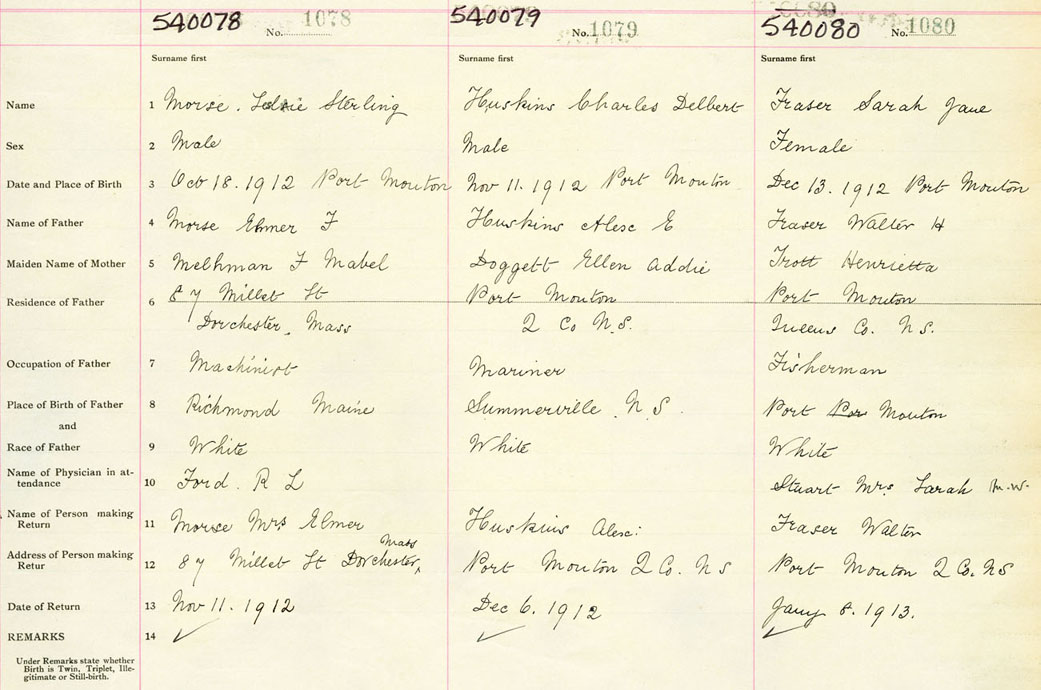 540078 No. 1078 540079 No. 1079 540080 No. 1080
Surname first Surname first Surname first
Name 1 Morse. Sterling Huskins Charles Delbert Fraser Sarah Jane
Sex 2 Male Male Female
Date and Place of Birth 3 Oct 18. 1912 Port Mouton Nov 11. 1912 Port Mouton Dec 13. 1912 Port Mouton
Name of Father 4 Morse Elmer F Huskins Alex E Fraser Walter H
Maiden Name of Mother 5 Melhman F Mabel Doggett Ellen Addie Trott Henrietta
Residence of Father 6 87 Millet St Port Mouton Port Mouton
Dorchester, Mass Q Co N.S. Queens Co. N S.
Occupation of Father 7 Machinist Mariner Fisherman
Place of Birth of Father 8 Richmond Maine Summerville N. S. Port Por Mouton
and
Race of Father 9 White White White
Name of Physician in at-
tendance 10 Ford. R L Stuart Mrs Sarah M.W.
Name of Person making
Return 11 Morse Mrs Elmer Huskins Alex: Fraser Walter
Mass
Address of Person making
Retur 12 87 Millet St Dorchester, Port Mouton Q Co. N S Port Mouton Q Co. N S
Date of Return 13 Nov 11. 1912 Dec 6. 1912 Jany 8. 1913.
REMARKS 14 ✓ ✓ ✓
Under Remarks state whether
Birth is Twin, Triplet, Ille-
gitimate or Still-birth.